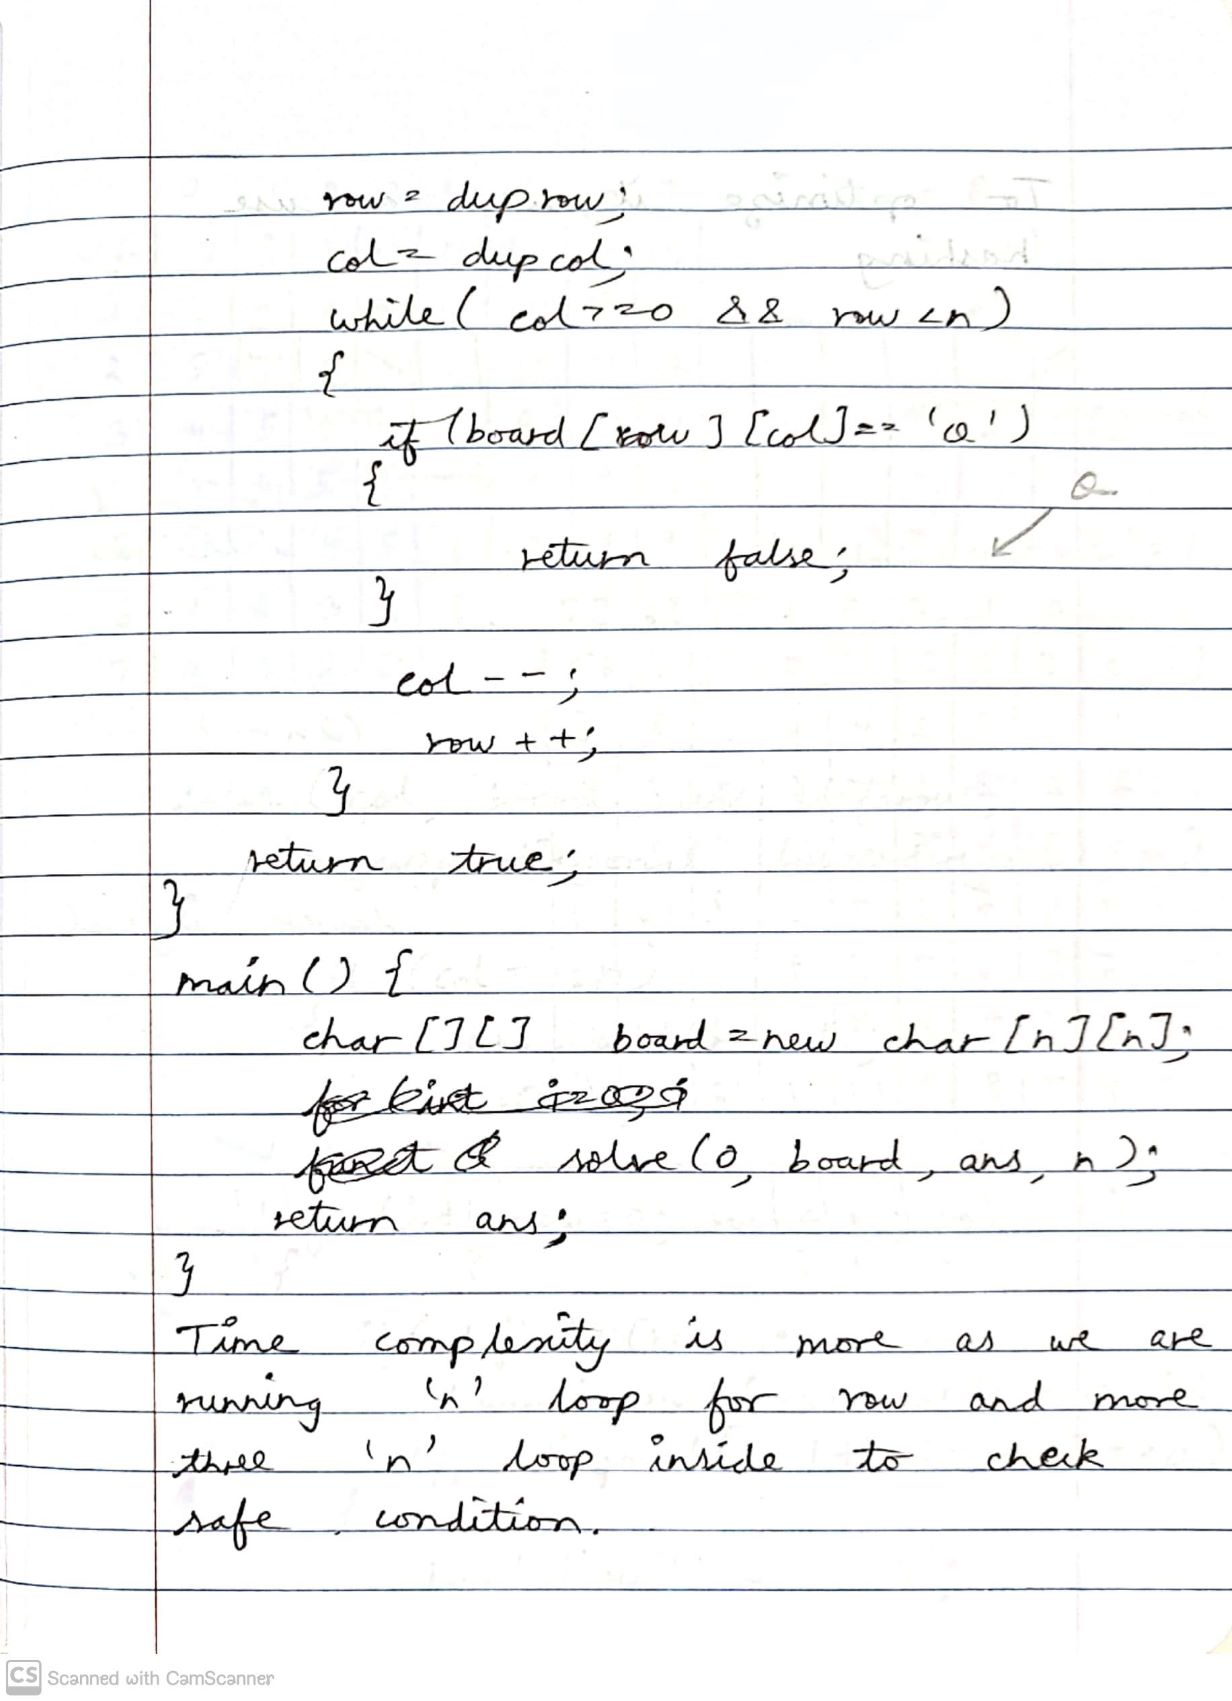 row = duprow;
col = dupcol;
while( col>=0 && row <n)
{
if (board [row] [col]== 'Q')
{
Q
return false;
}
col --;
row ++;
}
return true;
}
main() {
char [][] board = new char [n][n];
solve(0, board, ans, n);
return ans;
}
Time complexity is more as we are
running 'n' loop for row and more
three 'n' loop inside to check
safe condition.
CS Scanned with CamScanner